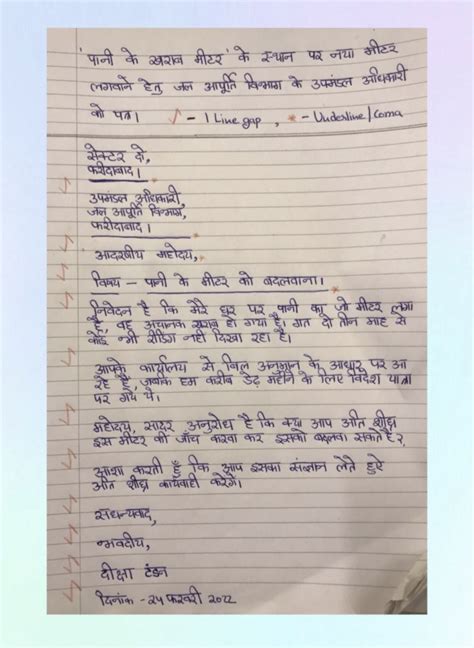 'पानी के खराब मीटर' के स्थान पर नया मीटर
लगवाने हेतु जल आपूर्ति विभाग के उपमंडल अधिकारी
को पत्र। ✓ - 1 Line gap , * - Underline/Coma
सेक्टर दो,
फरीदाबाद।
उपमंडल अधिकारी,
जल आपूर्ति विभाग,
फरीदाबाद।
आदरणीय महोदय,
विषय - पानी के मीटर को बदलवाना।
निवेदन है कि मेरे घर पर पानी का जो मीटर लगा
है, वह अचानक खराब हो गया है। गत दो तीन माह से
कोई भी रीडिंग नहीं दिखा रहा है।
आपके कार्यालय से बिल अनुमान के आधार पर आ
रहे हैं, जबकि हम करीब डेढ़ महीने के लिए विदेश यात्रा
पर गये थे।
महोदय, सादर अनुरोध है कि क्या आप अति शीघ्र
इस मीटर की जाँच करवा कर इसको बदलवा सकते हैं?
आशा करती हूँ कि आप इसका संज्ञान लेते हुऐ
अति शीघ्र कार्यवाही करेंगे।
सधन्यवाद,
भवदीय,
दीक्षा टंडन
दिनांक - २४ फरवरी २०२२